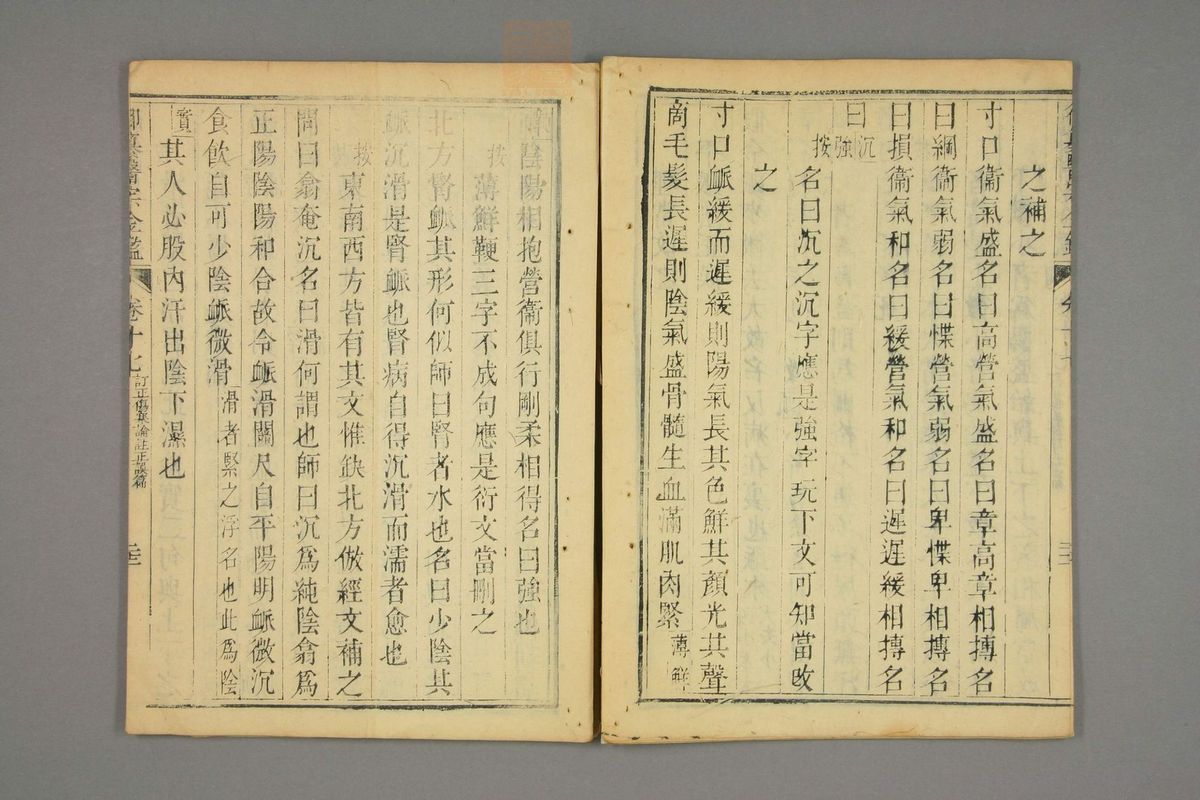 之補之
寸口衞氣盛名曰高營氣盛名曰章高章相摶名
曰綱衞氣弱名曰惵營氣弱名曰卑惵卑相摶名
曰損衞氣和名曰緩營氣和名曰遲遲緩相摶名
曰沉強
按名曰沉之沉字應是強字玩下文可知當攺
之
寸口脈緩而遲緩則陽氣長其色鮮其顏光其聲
商毛髮長遲則陰氣盛骨髓生血滿肌肉緊薄鮮
陰陽相抱營衞俱行剛柔相得名曰強也
按薄鮮鞕三字不成句應是衍文當刪之
北方腎脈其形何似師曰腎者水也名曰少陰其
脈沉滑是腎脈也腎病自得沉滑而濡者愈也
按東南西方皆有其文惟缺北方倣經文補之
問曰翕奄沉名曰滑何謂也師曰沉爲純陰翕爲
正陽陰陽和合故令脈滑關尺自平陽明脈微沉
食飲自可少陰脈微滑滑者緊之浮名也此爲陰
實其人必股內汗出陰下濕也
御纂醫宗金鑑 卷十七 訂正傷寒論註正誤篇